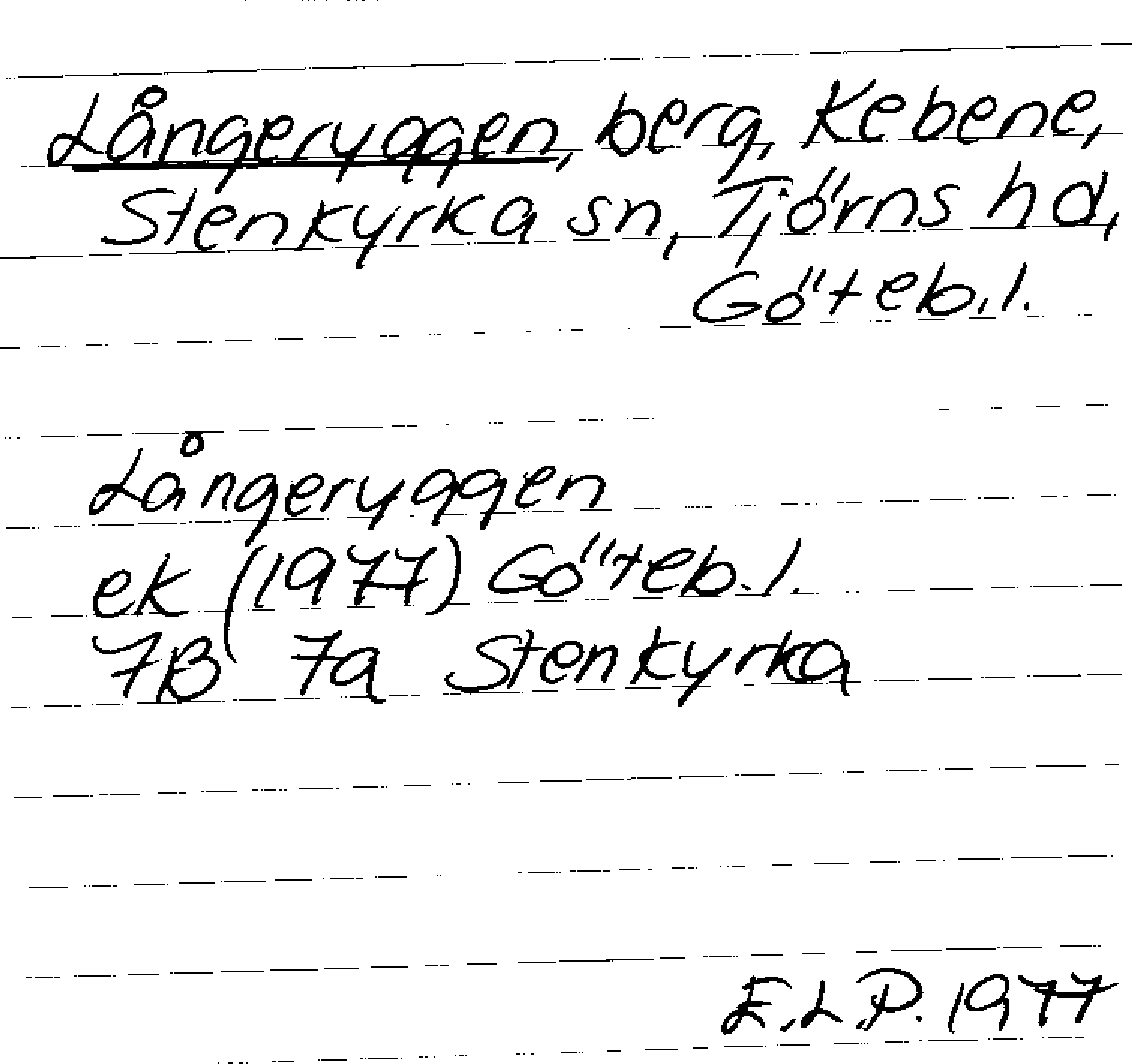 Långeryggen, berg, Kebene,
Stenkyrka sn, Tjörns hd,
Göteb.l.
Långeryggen
ek (1977) Göteb.l.
7B 7a Stenkyrka
E.L.P. 1977